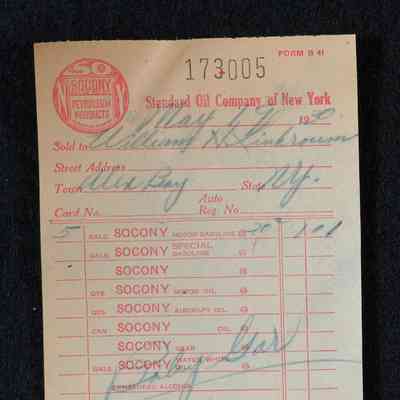 FORM B 41
SOCONY
PETROLEUM
PRODUCTS
173005
Standard Oil Company of New York
May 19
Sold to William H
Street Address
Town Alex Bay State N.Y.
Auto
Card No. Reg. No.
5 GALS SOCONY MOTOR GASOLINE @ 20 1 0 0
GALS SOCONY SPECIAL GASOLINE @
SOCONY @
QTS SOCONY MOTOR OIL @
QTS SOCONY AIRCRAFT OIL @
CAN SOCONY OIL @
SOCONY GEAR
GALS SOCONY WATER WHITE
DENATURED ALCOHOL